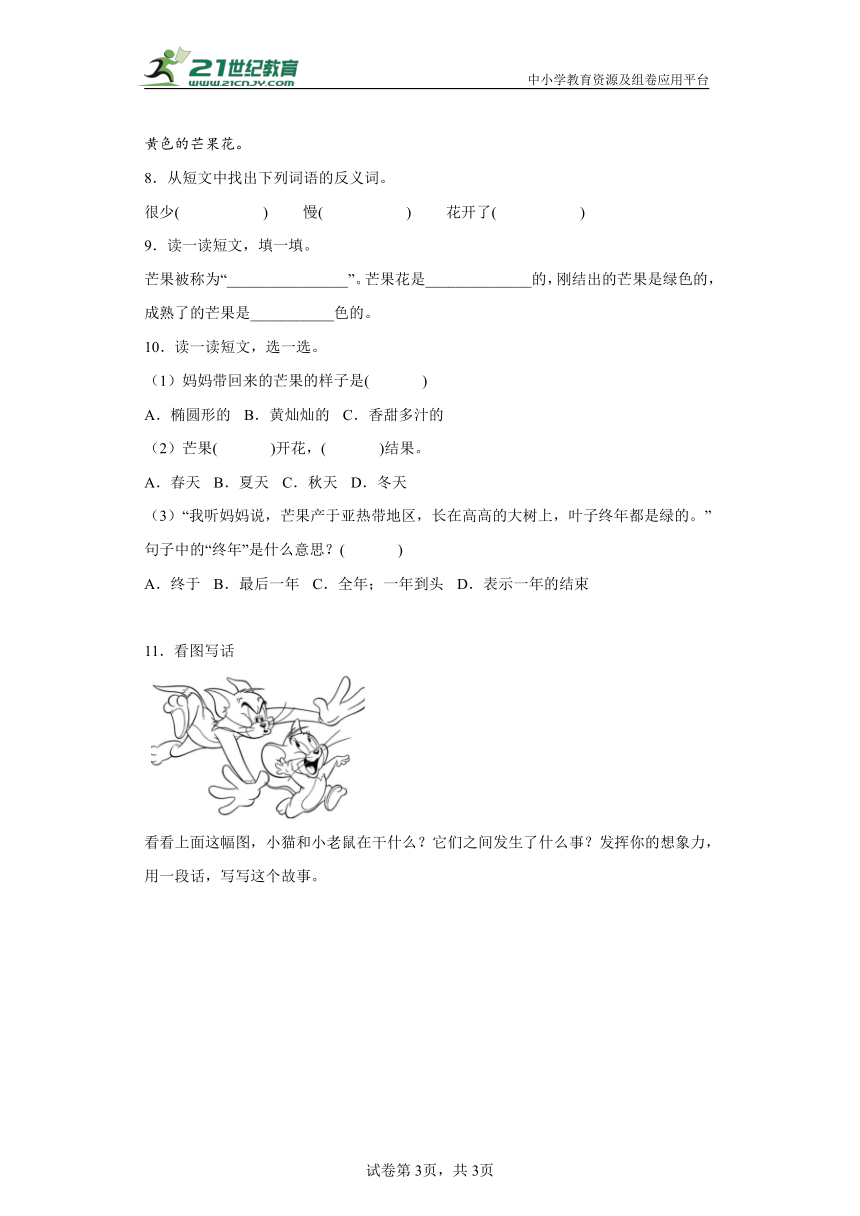 21世纪教育
WWW.21CNJY.COM
中小学教育资源及组卷应用平台
黄色的芒果花。
8．从短文中找出下列词语的反义词。
很少( ) 慢( ) 花开了( )
9．读一读短文，填一填。
芒果被称为“________________”。芒果花是______________的，刚结出的芒果是绿色的，
成熟了的芒果是___________色的。
10．读一读短文，选一选。
（1）妈妈带回来的芒果的样子是( )
A．椭圆形的 B．黄灿灿的 C．香甜多汁的
（2）芒果( )开花，( )结果。
A．春天 B．夏天 C．秋天 D．冬天
（3）“我听妈妈说，芒果产于亚热带地区，长在高高的大树上，叶子终年都是绿的。”
句子中的“终年”是什么意思？( )
A．终于 B．最后一年 C．全年；一年到头 D．表示一年的结束
11．看图写话
看看上面这幅图，小猫和小老鼠在干什么？它们之间发生了什么事？发挥你的想象力，
用一段话，写写这个故事。
试卷第3页，共3页